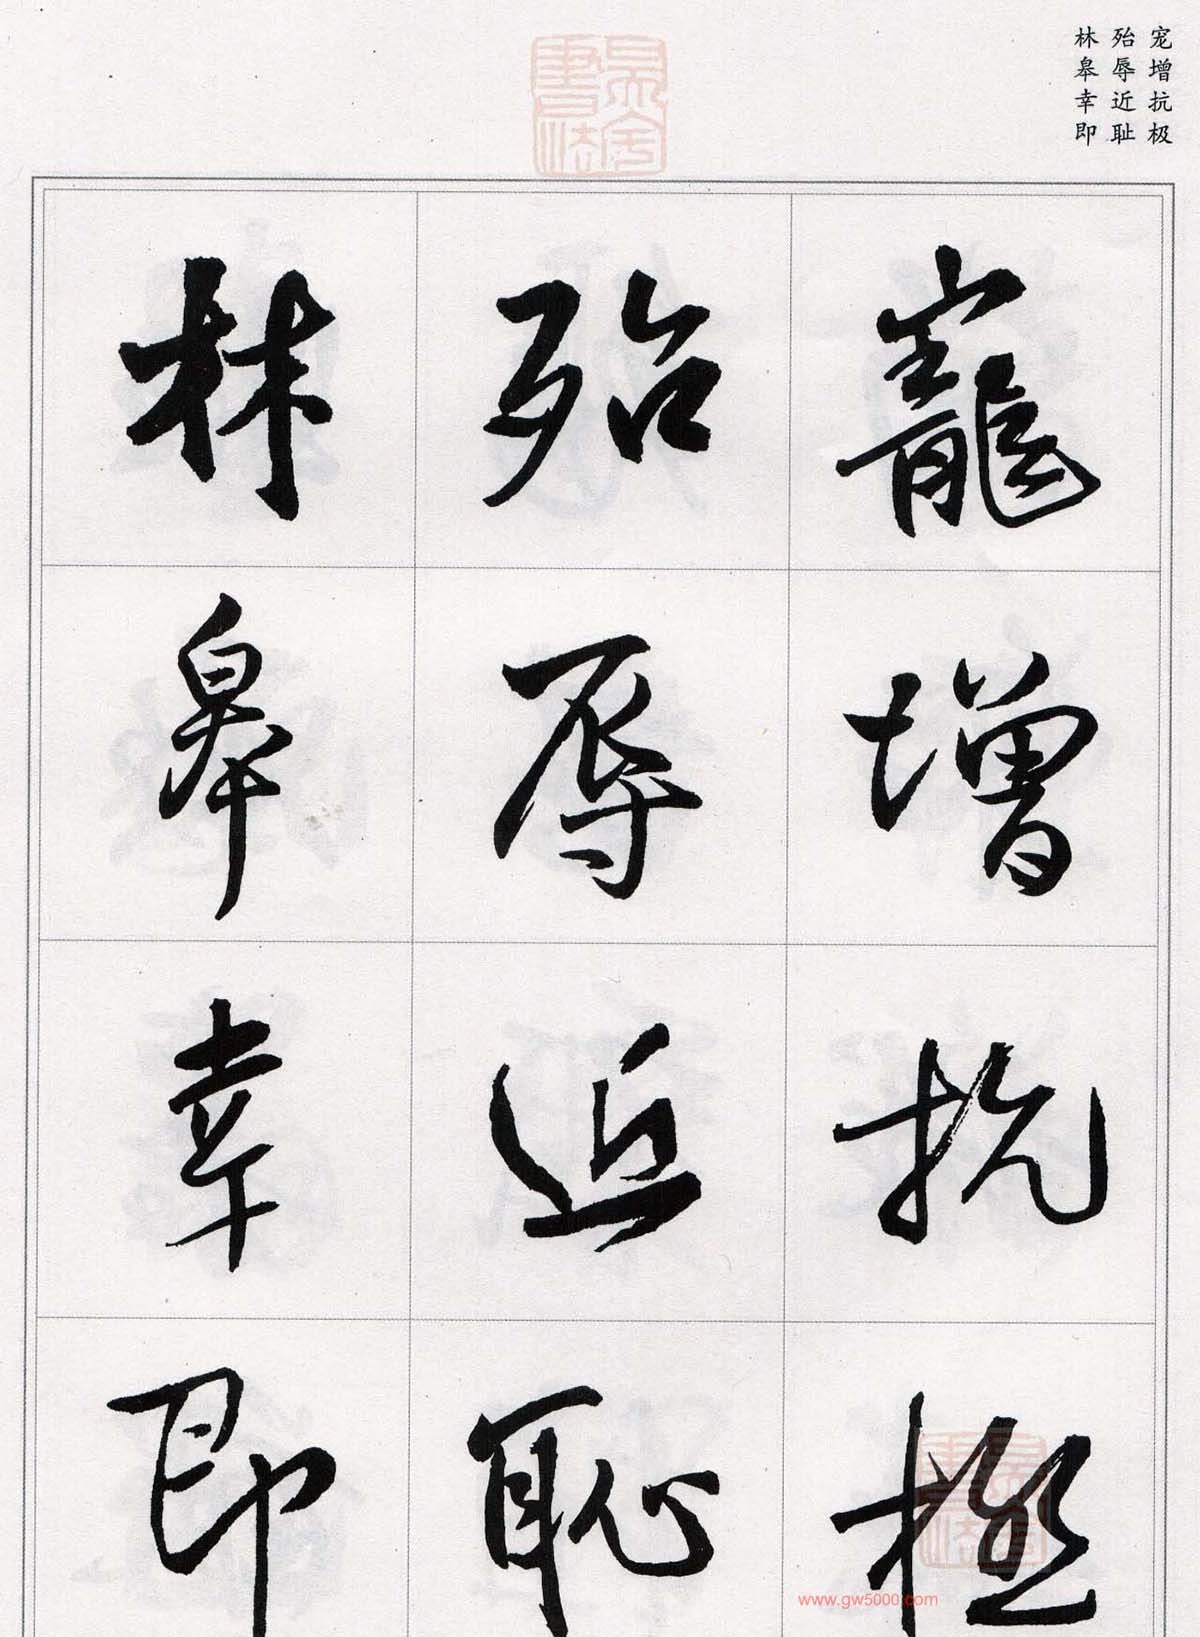 宠增抗极
殆辱近耻
林皋幸即
寵增抗極
殆辱近恥
林皋幸即
www.gw5000.com